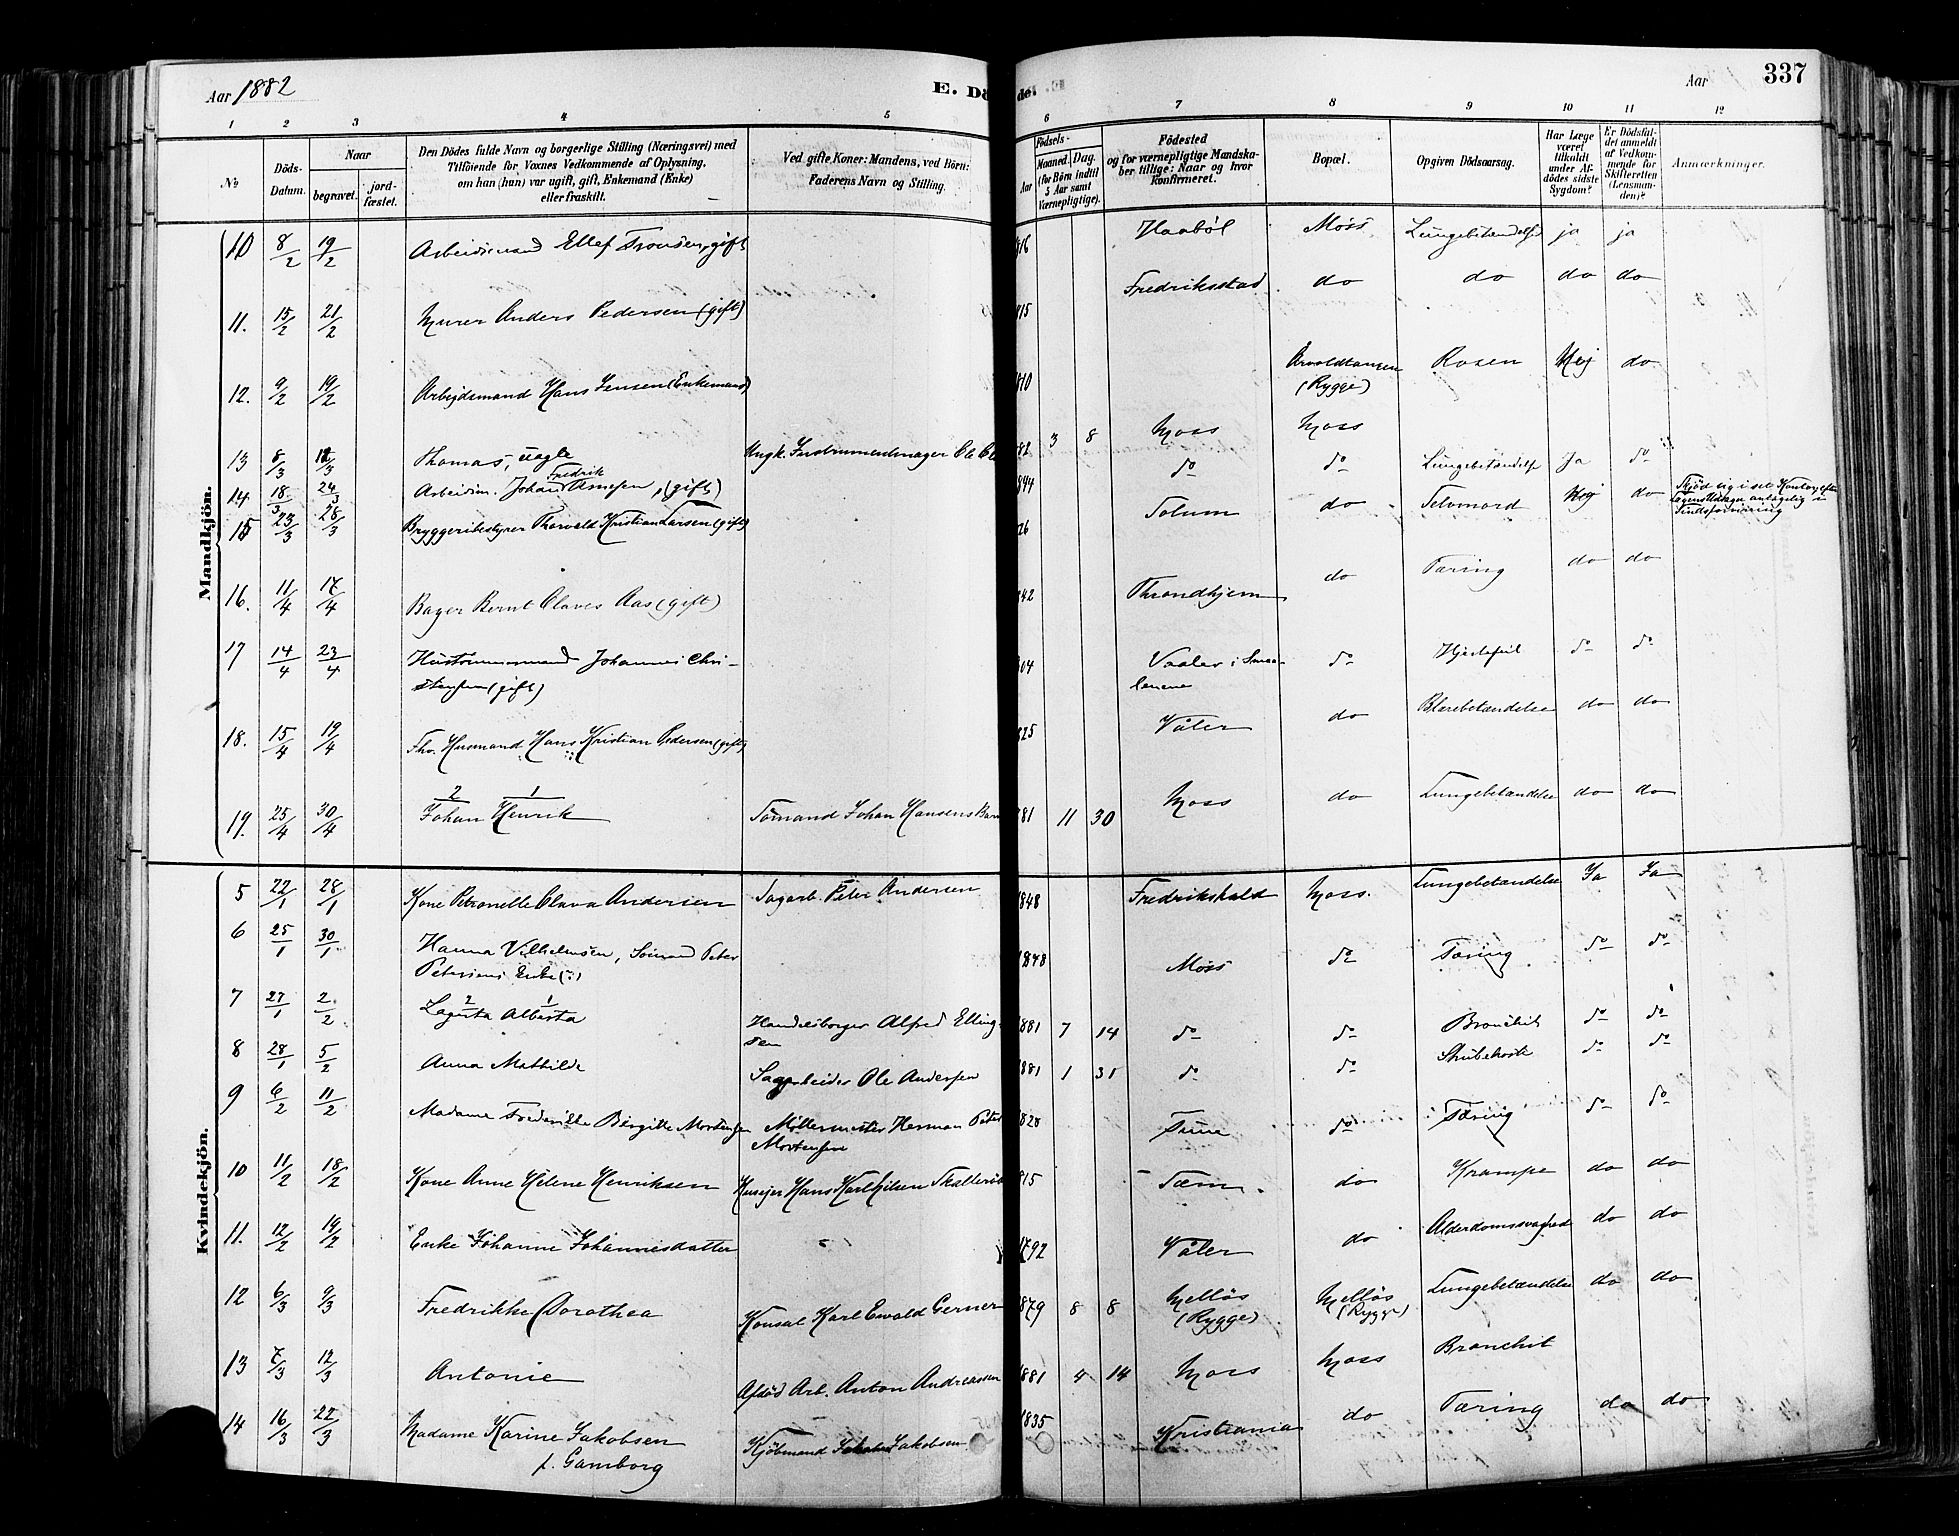 Aar 1882
E. Dö
de.
Aar
337
1 2 3 4 5
6 7 8 9 10 11 12
№
Döds-
Datum.
Naar
begravet.
jord-
fæstet.
Den Dödes fulde Navn og borgerlige Stilling (Næringsvei) med
Tilföiende for Voxnes Vedkommende af Oplysning,
om han (hun) var ugift, gift, Enkemand (Enke)
eller fraskilt.
Ved gifte Koner: Mandens, ved Börn:
Faderens Navn og Stilling.
Födsels-
Aar
Maaned.
Dag.
(for Börn indtil
5 Aar samt
Værnepligtige).
Födested
og for værnepligtige Mandska-
ber tillige: Naar og hvor
Konfirmeret.
Bopæl.
Opgiven Dödsaarsag.
Har Læge
været
tilkaldt
under Af-
dödes sidste
Sygdom?
Er Dödsfal-
det anmeldt
af Vedkom-
mende for
Skifteretten
(Lensman-
den)?
Anmærkninger.
Mandkjön.
10 8/2 19/2 Arbeidsmand Ellef Tronsen, gift 16 Haabøl Moss Lungebetændelse ja ja
11. 15/2 21/2 Murer Anders Pedersen (gift) 15 Fredriksstad do do do do
12. 9/2 19/2 Arbejdsmand Hans Jensen (Enkemand) 10 Årvoldtangen Rosen Nej do
(Rygge)
13 8/3 12/3 Thomas, uægte Ungk. Instrumentmager Ole 82 3 8 Moss Moss
14. 18/3 24/3 Arbeidsm. Johan Fredrik Arnesen, (gift) 44 do do Lungebetændelse Ja do
15 23/3 28/3 Bryggeribestyrer Thorvald Kristian Larsen (gift) 26 Solum do Selvmord Nej do Skjød sig i set Kontor, efter
Lægens antagelig i
Sindsforvirring
16. 11/4 17/4 Bager Bernt Olaves Aas (gift) 42 Throndhjem do Tæring do do
17 14/4 23/4 Hustømmermand Johannes Chri-
stensen (gift) 04 Vaaler i Smaa-
lenene do Hjertefeil do do
18. 15/4 19/4 Fhv. Husmand Hans Kristian Pedersen (gift) 25 Våler do Blærebetændelse do do
19. 25/4 30/4 2 Johan 1 Henrik Sømand Johan Hansens Barn 81 11 30 Moss do Lungebetændelse do do
Kvindekjön.
5 22/1 28/1 Kone Petronelle Olava Andersen Sagarb. Peter Andersen 1848 Fredrikshald Moss. Lungebetændelse Ja Ja
6 25/1 30/1 Hanna Vilhelmsen, Sømand Peter
Petersens Enke 1848 Moss do Tæring do do
7 27/1 2/2 2 Lagerta 1 Alberta Handelsborger Alfred Elling-
sen 1881 7 14 do do Bronchit do do
8 28/1 5/2 Anna Mathilde Sagarbeider Ole Andersen 881 1 31 do do Strubehoste do do
9 6/2 11/2 Madame Frederikke Birgitte Mortensen Møllermester Herman Peter
Mortensen 828 Tune do Tæring do do
10 11/2 18/2 Kone Anne Helene Henriksen Husejer Hans Karl Nilsen 815 do Krampe do do
11. 12/2 19/2 Enke Johanne Johannesdatter 1792 Våler do Alderdomssvaghed do do
12 6/3 9/3 Fredrikke Dorothea Konsul Karl Ewald Gerner 1879 8 8 Melløs
(Rygge) Melløs
(Rygge) Lungebetændelse do do
13 7/3 12/3 Antonie Afdød Arb. Anton Andreassen 1881 4 14 Moss Moss Bronchit
14 16/3 22/3 Madame Karine Jakobsen
f. Gamborg Kjøbmand Jakobsen 1835 Kristiania do Tæring do do